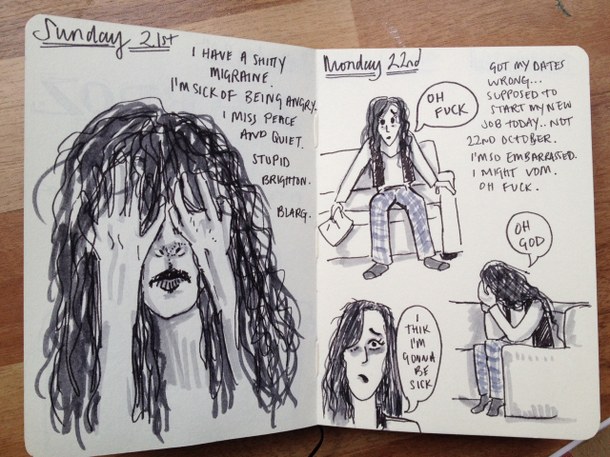 Sunday 21st
I HAVE A SHITTY
MIGRAINE.
I'M SICK OF BEING ANGRY.
I MISS PEACE
AND QUIET.
STUPID
BRIGHTON.
BLARG.
Monday 22nd
OH
FUCK
GOT MY DATES
WRONG...
SUPPOSED TO
START MY NEW
JOB TODAY.. NOT
22ND OCTOBER.
I'M SO EMBARRASSED.
I MIGHT VOM.
OH FUCK.
OH
GOD
I
THIK
I'M
GONNA
BE
SICK